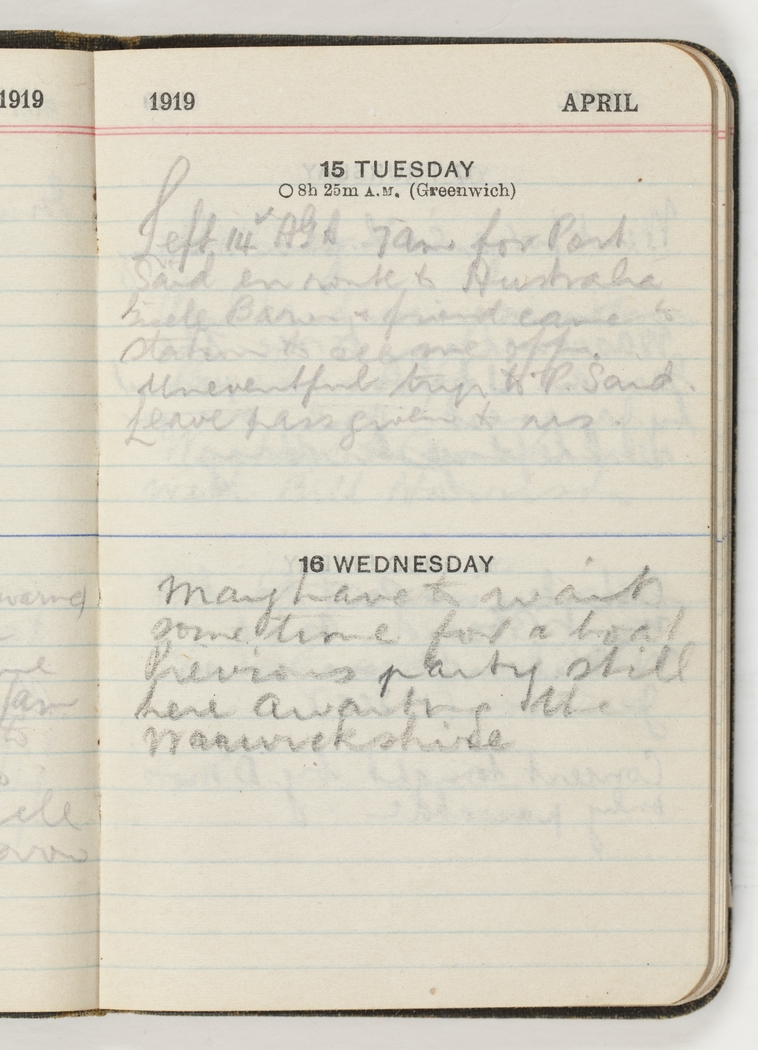 1919
1919 APRIL
15 TUESDAY
8h 25m A.M. (Greenwich)
Left 14 AGH 7am for Port
Said en route to Australia
Baxer & friend came to
station to see me off.
Uneventful trip to P. Said.
Leave pass given to us.
16 WEDNESDAY
May have to wait
some time for a boat
Previous party still
here awaiting the
Warwickshire